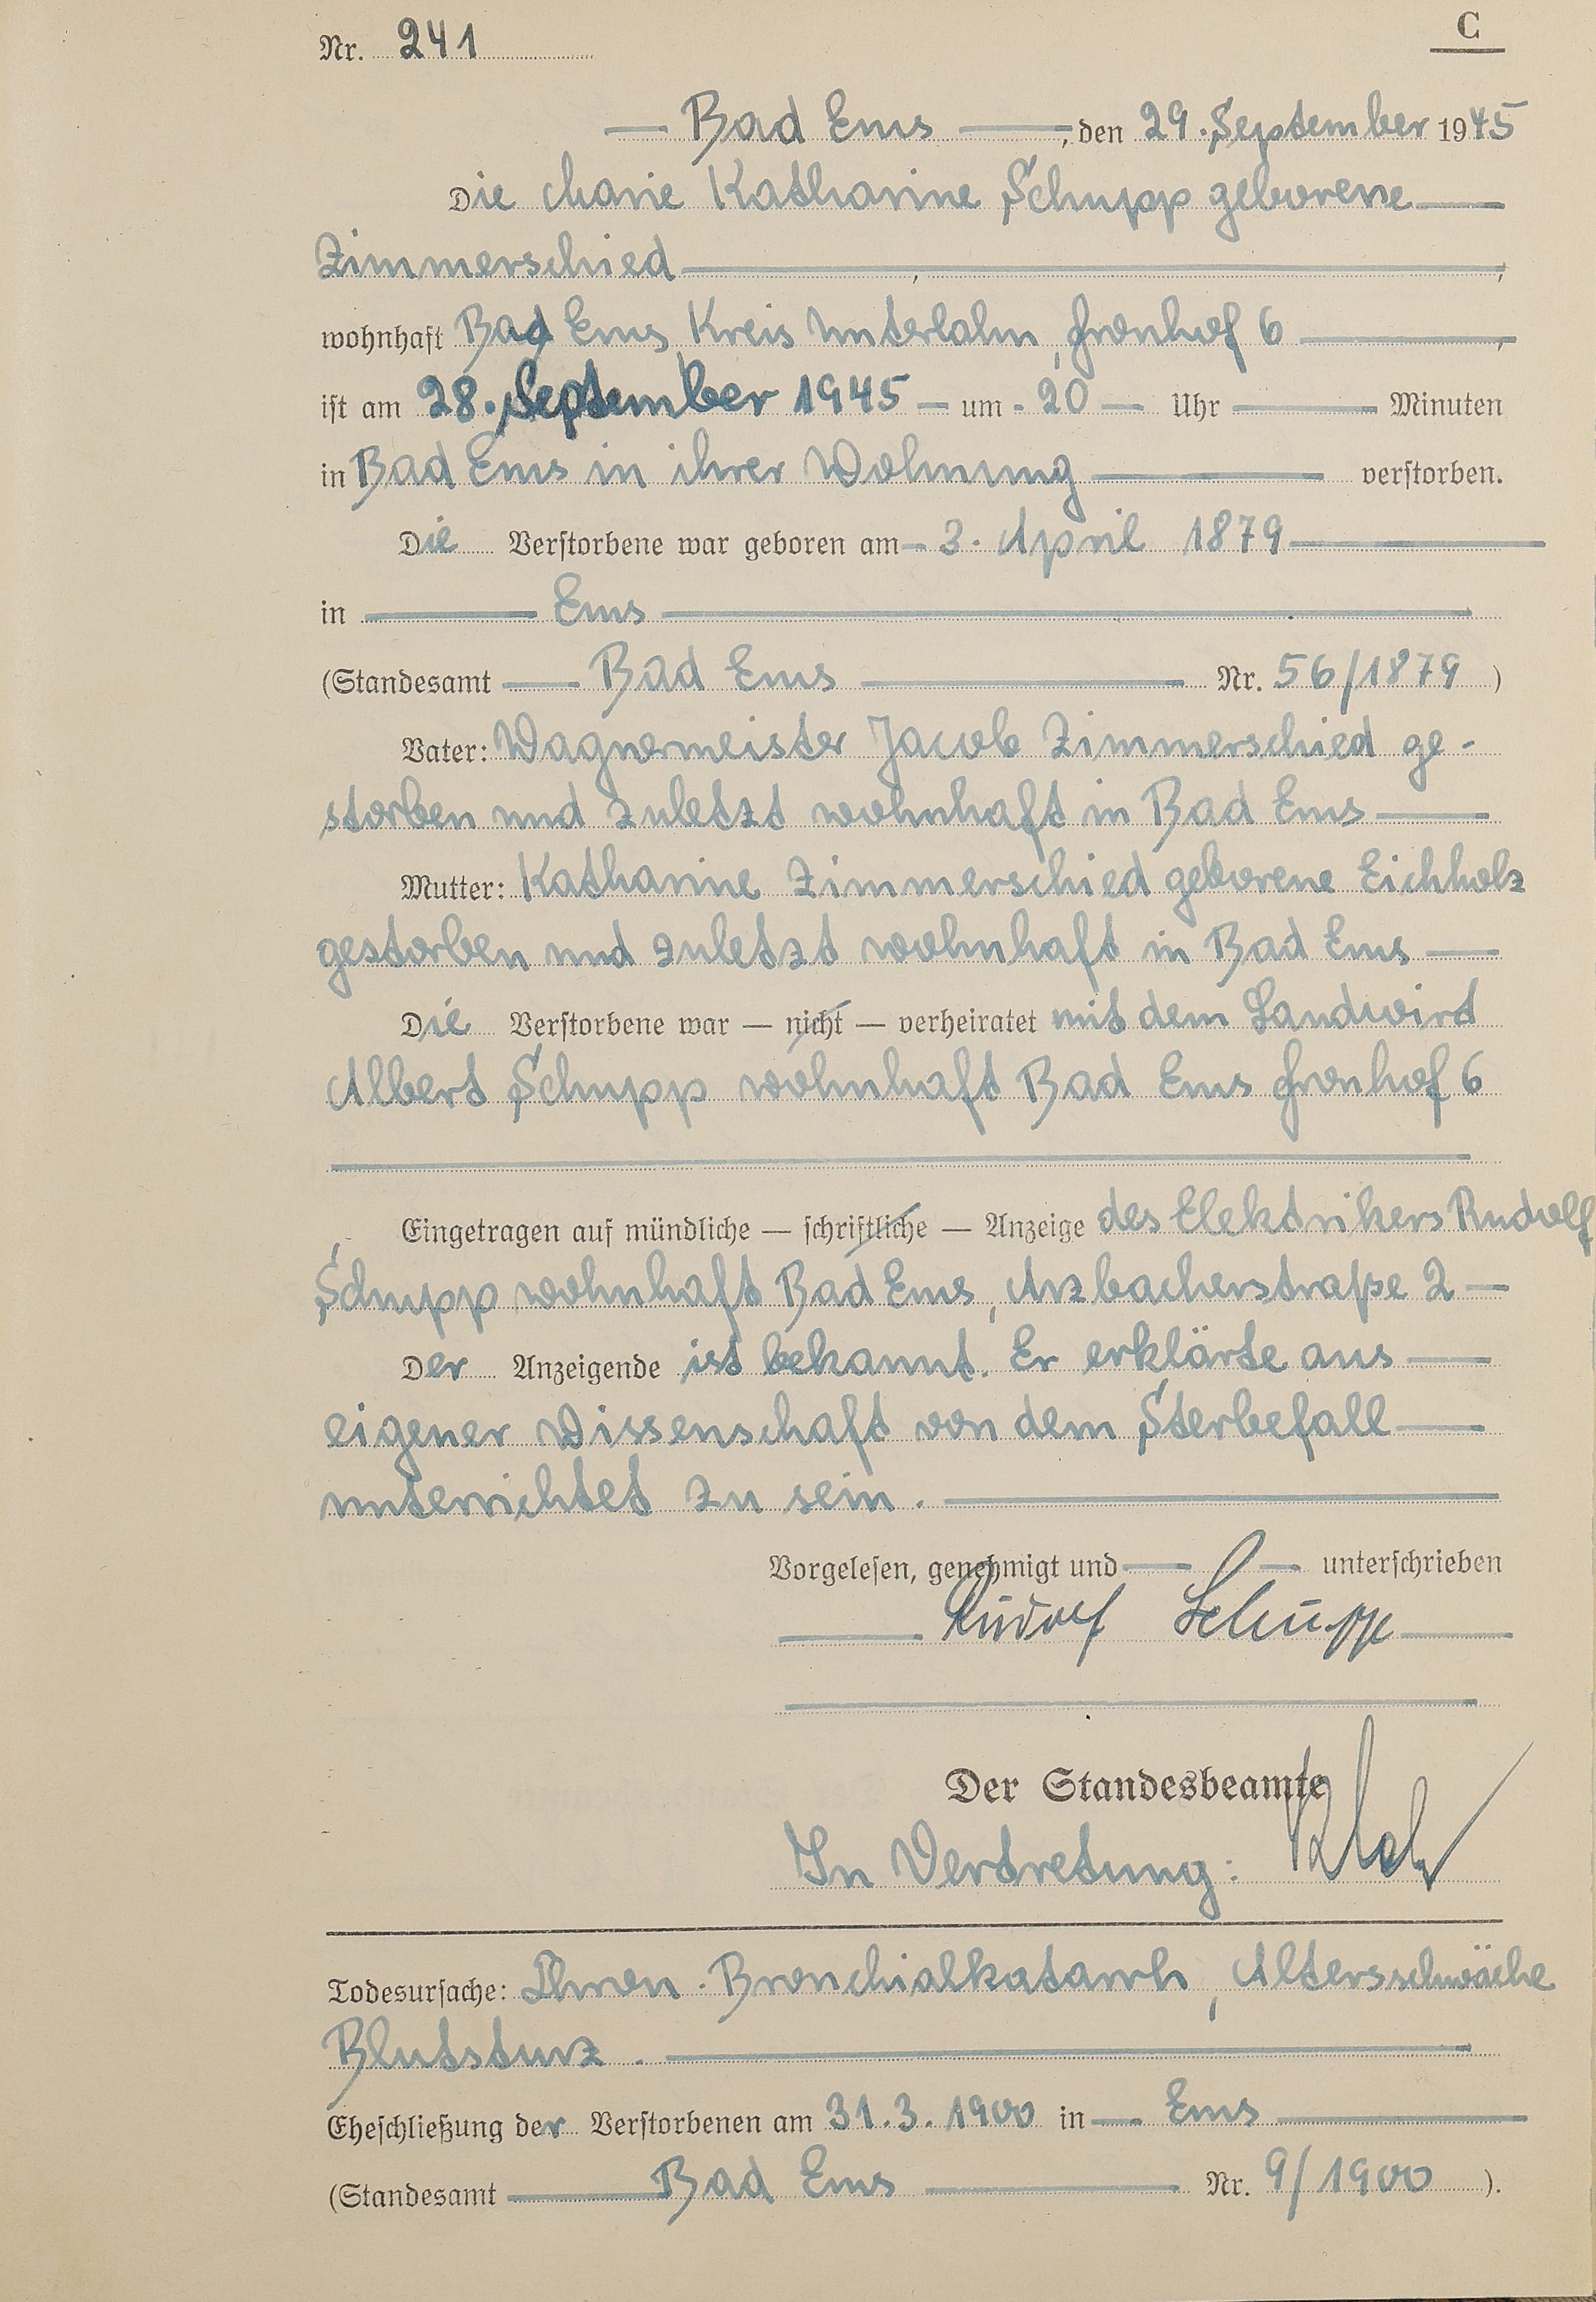 Nr. 241
C
— Bad Ems —, den 29. September 1945
Die Marie Katharine Schupp geborene —
Zimmerschied —, —,
wohnhaft Bad Ems, Kreis Unterlahn, Fronhof 6 —,
ist am 28. September 1945 — um - 20 — Uhr — Minuten
in Bad Ems in ihrer Wohnung — verstorben.
Die Verstorbene war geboren am - 3. April 1879 —
in — Ems —
(Standesamt — Bad Ems — Nr. 56/1879 )
Vater: Wagnermeister Jacob Zimmerschied ge-
storben und zuletzt wohnhaft in Bad Ems —
Mutter: Katharine Zimmerschied geborene Eichholz
gestorben und zuletzt wohnhaft in Bad Ems —
Die Verstorbene war — nicht — verheiratet mit dem Landwirt
Albert Schupp wohnhaft Bad Ems Fronhof 6
Eingetragen auf mündliche — schriftliche — Anzeige des Elektrikers Rudolf
Schupp wohnhaft Bad Ems, Arzbacherstraße 2 —
Der Anzeigende ist bekannt. Er erklärte aus —
eigener Wissenschaft von dem Sterbefall —
unterrichtet zu sein. —
Vorgelesen, genehmigt und — — unterschrieben
— Rudolf Schupp —
Der Standesbeamte
In Vertretung:
Todesursache: Chron. Bronchialkatarrh, Altersschwäche
Blutsturz. —
Eheschließung der Verstorbenen am 31.3.1900 in — Ems —
(Standesamt — Bad Ems — Nr. 9/1900 ).